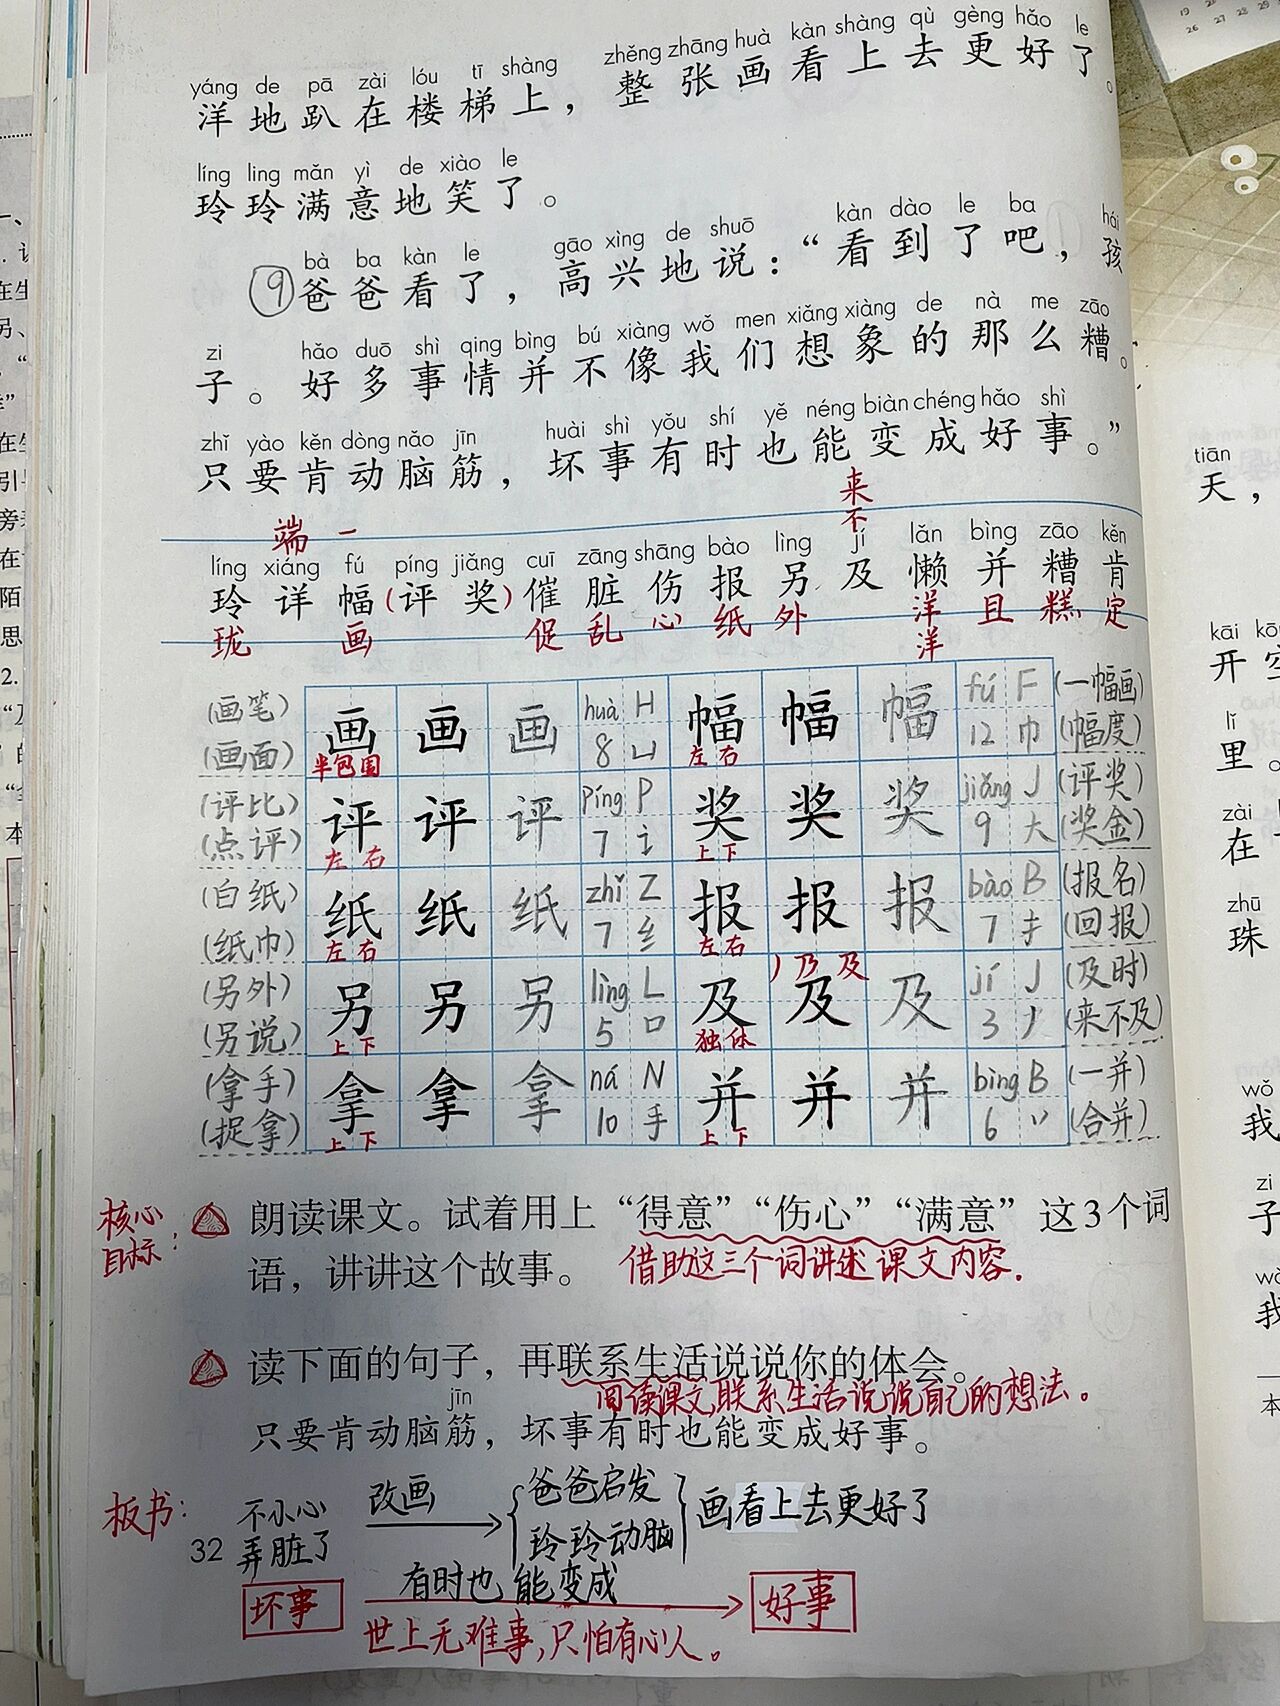 yáng de pā zài lóu tī shàng zhěng zhāng huà kàn shàng qù gèng hǎo le
洋地趴在楼梯上，整张画看上去更好了。
líng ling mǎn yì de xiào le
玲玲满意地笑了。
bà ba kàn le gāo xìng de shuō kàn dào le ba hái
⑨爸爸看了，高兴地说：“看到了吧，孩
zi hǎo duō shì qing bìng bú xiàng wǒ men xiǎng xiàng de nà me zāo
子。好多事情并不像我们想象的那么糟。
zhǐ yào kěn dòng nǎo jīn huài shì yǒu shí yě néng biàn chéng hǎo shì
只要肯动脑筋，坏事有时也能变成好事。”
端一 来不
líng xiáng fú píng jiǎng cuī zāng shāng bào lìng jí lǎn bìng zāo kěn
玲详幅(评奖)催脏伤报另及懒并糟肯
珑 画 促 乱 心 纸 外 洋洋 且 糕 定
(画笔) 画 画 画 huà H 幅 幅 幅 fú F (一幅画)
(画面) 半包围 8 凵 左右 12 巾 (幅度)
(评比) 评 评 评 píng P 奖 奖 奖 jiǎng J (评奖)
(点评) 左右 7 讠 上下 9 大 (奖金)
(白纸) 纸 纸 纸 zhǐ Z 报 报 报 bào B (报名)
(纸巾) 左右 7 纟 左右 7 扌 (回报)
丿乃及
(另外) 另 另 另 lìng L 及 及 及 jí J (及时)
(另说) 上下 5 口 独体 3 丿 (来不及)
(拿手) 拿 拿 拿 ná N 并 并 并 bìng B (一并)
(捉拿) 上下 10 手 上下 6 丷 (合并)
核心目标：
朗读课文。试着用上“得意”“伤心”“满意”这3个词
语，讲讲这个故事。 借助这三个词讲述课文内容.
读下面的句子，再联系生活说说你的体会。
阅读课文，联系生活说说自己的想法。
jīn
只要肯动脑筋，坏事有时也能变成好事。
板书：
不小心弄脏了 改画 爸爸启发 玲玲动脑 画看上去更好了
32
坏事 有时也能变成 好事
世上无难事，只怕有心人。
tiān
天，
kāi
开
lǐ
里。
zài
在
zhū
珠
wǒ
我
zi
子
我